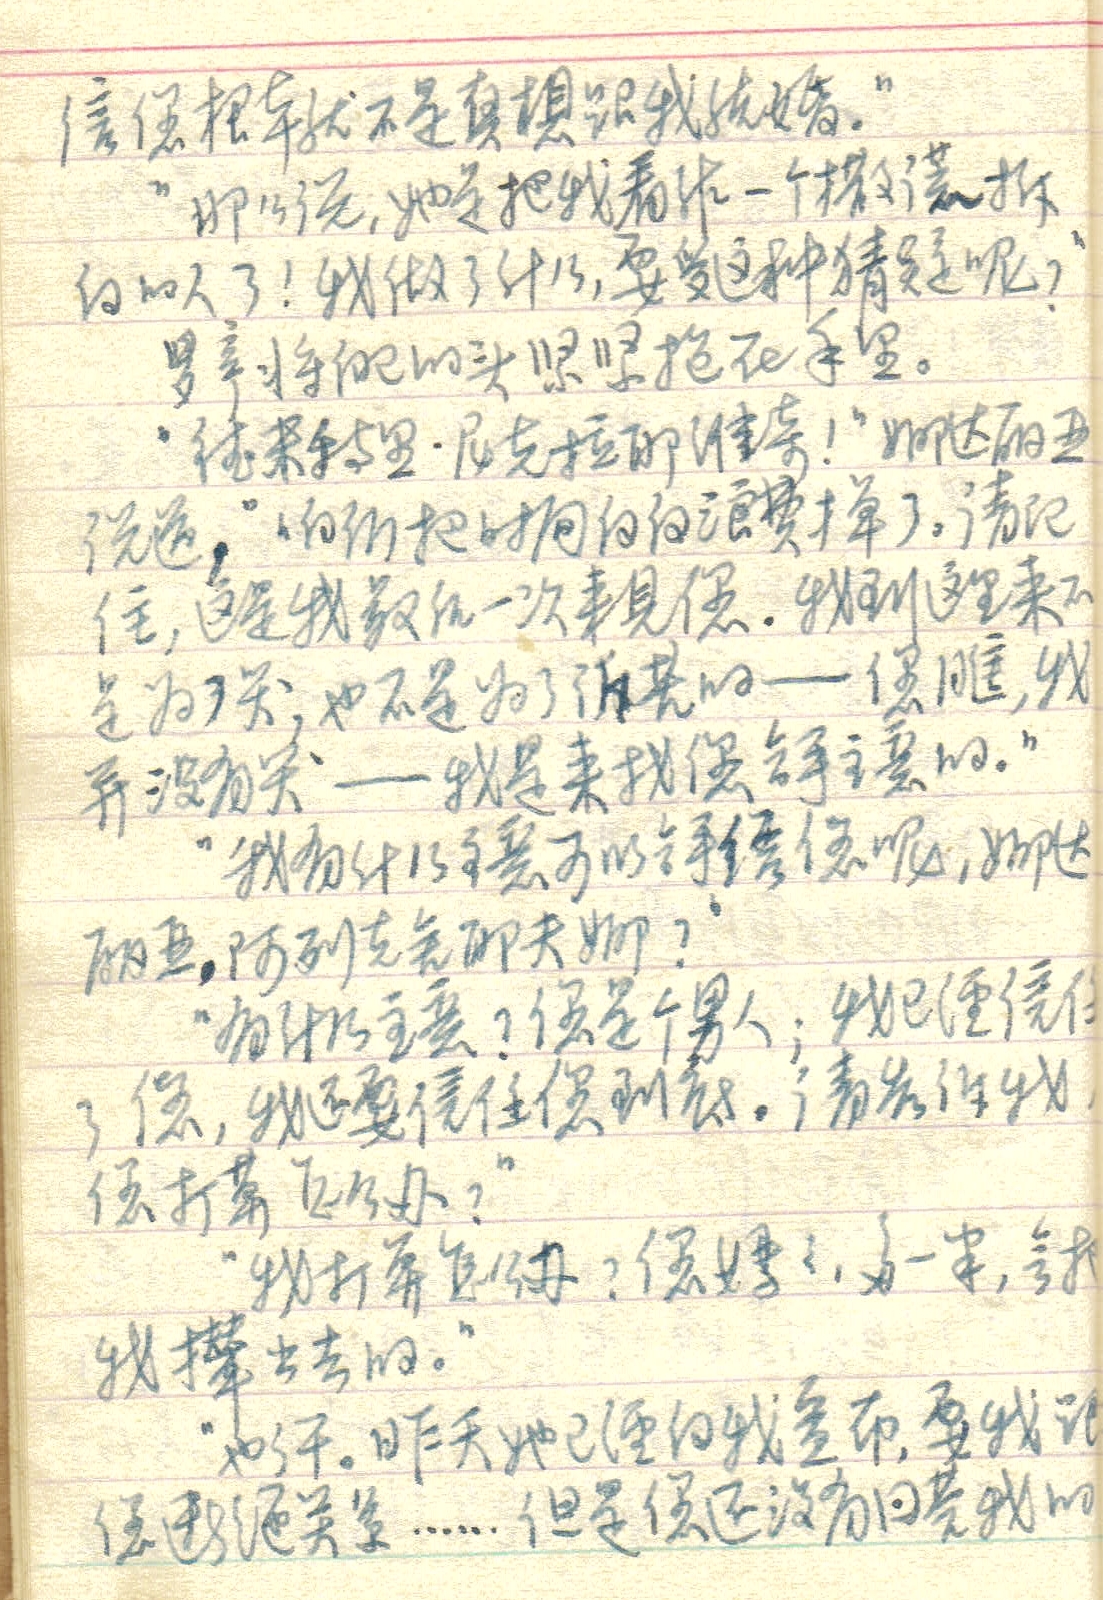 信您根本就不是真想跟我结婚。"
"那么说，她是把我看作一个撒谎掉
白的人了！我做了什么，要受这种猜疑呢？"
罗亭将自己的头紧紧抱在手里。
"德米特里·尼克拉耶维奇！"娜达丽亚
说道，"我们把时间白白浪费掉了。请记
住，这是我最后一次来见您。我到这里来不
是为了哭，也不是为了诉苦的——您瞧，我
并没有哭——我是来找您拿主意的。"
"我有什么主意可以拿给您呢，娜达
丽亚，阿列克克耶夫娜？"
"有什么主意？您是个男人；我已经信任
了您，我还要信任您到底。请告诉我，
您打算怎么办？"
"我打算怎么办？您妈妈，多一半，会把
我撵出去的。"
"也许。昨天她已经向我宣布，要我跟
您断绝关系……但是您还没有回答我的